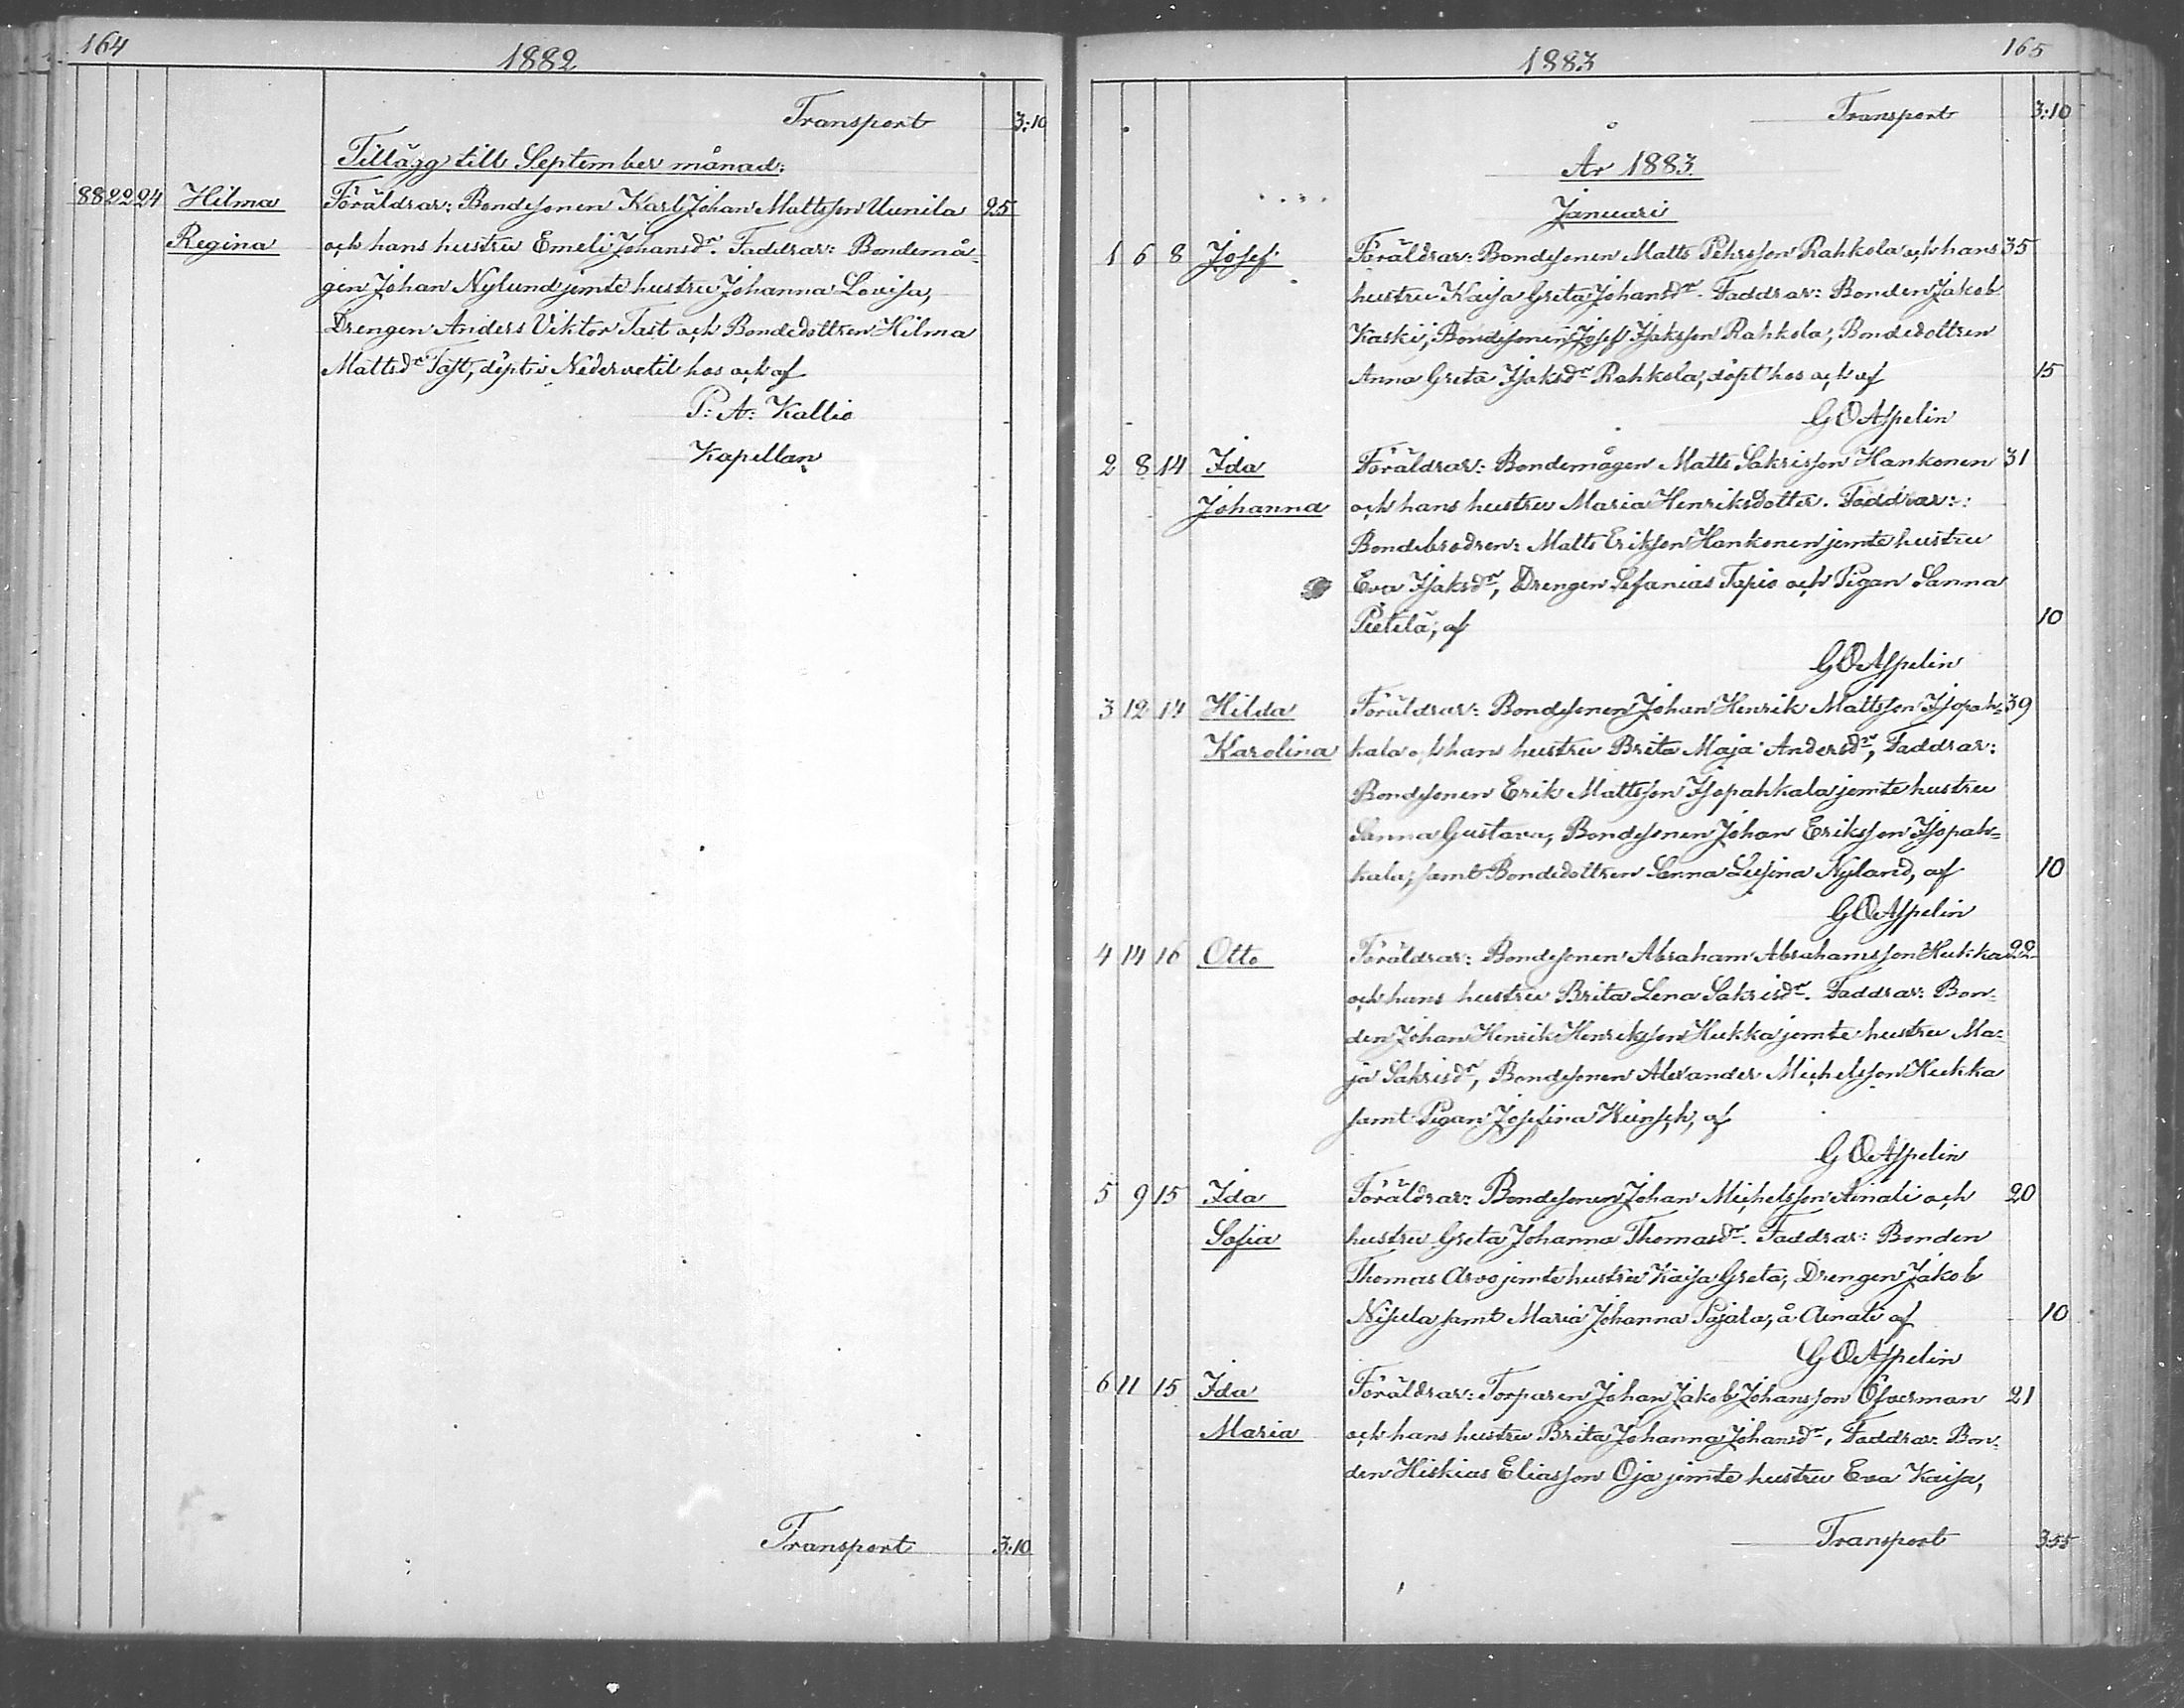 164
1882
Transport 3:10
Tillägg till September månad:
88 22 24 Hilma Föräldrar: Bondesonen Karl Johan Mattsson Uunila 25
Regina och hans hustru Emeli Johansdr. Faddrar: Bondemå-
gen Johan Nylund jemte hustru Johanna Lovisa,
Drengen Anders Viktor Tast och Bondedottren Hilma
Mattsdr Tast, döpt i Nedervetil hos och af
P. A. Kallio
Kapellan
Transport 3:10
165
1883
Transport 3:10
År 1883
Januari
1 6 8 Josef Föräldrar: Bondesonen Matts Pehrsson Rahkola och hans 35
hustru Kaisa Greta Johansdr. Faddrar: Bonden Jakob
Kaski, Bondesonen Josef Isaksson Rahkola, Bondedottren
Anna Greta Isaksdr Rahkola, döpt hos och af 15
G O Aspelin
2 8 14 Ida Föräldrar: Bondemågen Matts Sakrisson Hankonen 31
Johanna och hans hustru Maria Henriksdotter. Faddrar:
Bondebrodren: Matts Eriksson Hankonen jemte hustru
Eva Isaksdr, Drengen Sefanias Tapio och Pigan Sanna
Pietilä, af 10
G O Aspelin
3 12 14 Hilda Föräldrar: Bondesonen Johan Henrik Mattsson Isopah= 39
Karolina kala och hans hustru Brita Maja Andersdr, Faddrar:
Bondesonen Erik Mattsson Isopahkala jemte hustru
Sanna Gustava, Bondesonen Johan Eriksson Isopah=
kala, samt Bondedottren Sanna Lusina Nyland, af 10
G O Aspelin
4 14 16 Otto Föräldrar: Bondesonen Abraham Abrahamsson Hukka 22
och hans hustru Brita Lena Sakrisdr. Faddrar: Bon-
den Johan Henrik Henriksson Hukka jemte hustru Ma-
ja Sakrisdr, Bondesonen Alexander Michelsson Hukka
samt Pigan Josefina af
G O Aspelin
5 9 15 Ida Föräldrar: Bondesonen Johan Michelsson Ainali och 20
Sofia hustru Greta Johanna Thomasdr. Faddrar: Bonden
Thomas Arvo jemte hustru Kaisa Greta, Drengen Jakob
Nisula samt Maria Johanna Pajala, å Ainali af 10
G O Aspelin
6 11 15 Ida Föräldrar: Torparen Johan Jakob Johansson Öfverman 21
Maria och hans hustru Brita Johanna Johansdr, Faddrar: Bon-
den Hiskias Eliasson Oja jemte hustru Eva Kaisa,
Transport 3:55